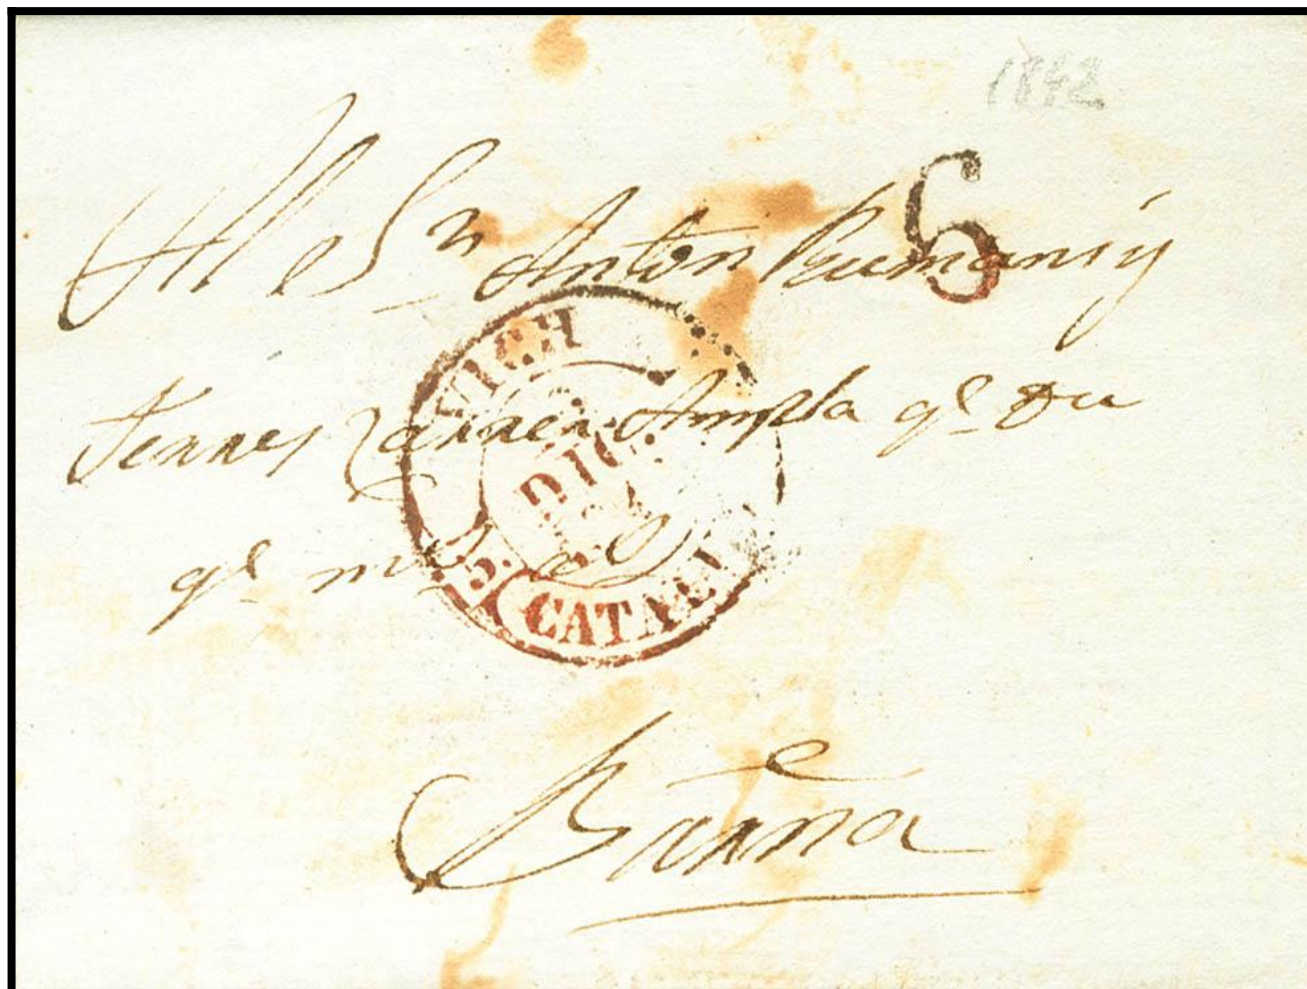 1842
6
Al Sr Anton Rumani y
Carrer Ampla qe Deu
qe
VICH
DIC.
CATAL
Barna